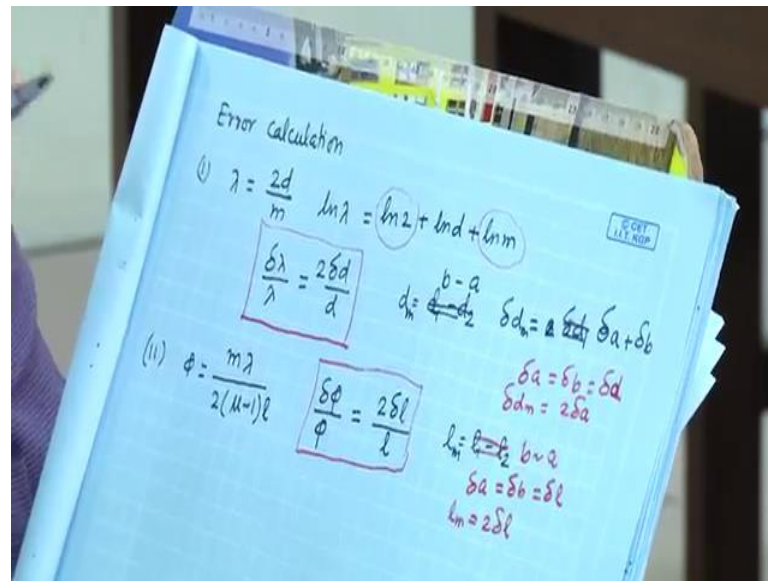 Error calculation
(i) λ = 2d/m   lnλ = ln2 + lnd + lnm
© CET
I.I.T. KGP
δλ/λ = 2δd/d
b - a
dₘ =   δdₘ =   δa + δb
δa = δb = δd
δdₘ = 2δa
(ii) φ = mλ/2(μ-1)l   δφ/φ = 2δl/l
lₘ =   b ~ a
δa = δb = δl
lₘ = 2δl